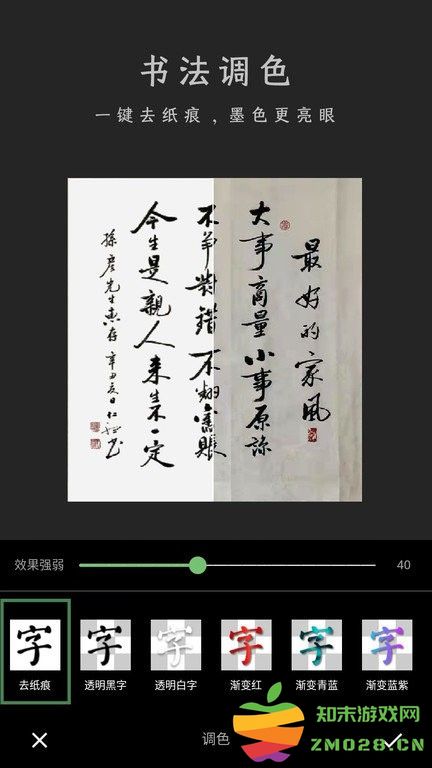 书法调色
一键去纸痕，墨色更亮眼
最好的家風
大事商量小事原谅
不争對錯不翻舊賬
今生是親人来生不一定
孫彦先生惠存辛丑
效果强弱
40
字 字 字 字 字 字
去纸痕 透明黑字 透明白字 渐变红 渐变青蓝 渐变蓝紫
调色
知末游戏网
ZMO28.CN